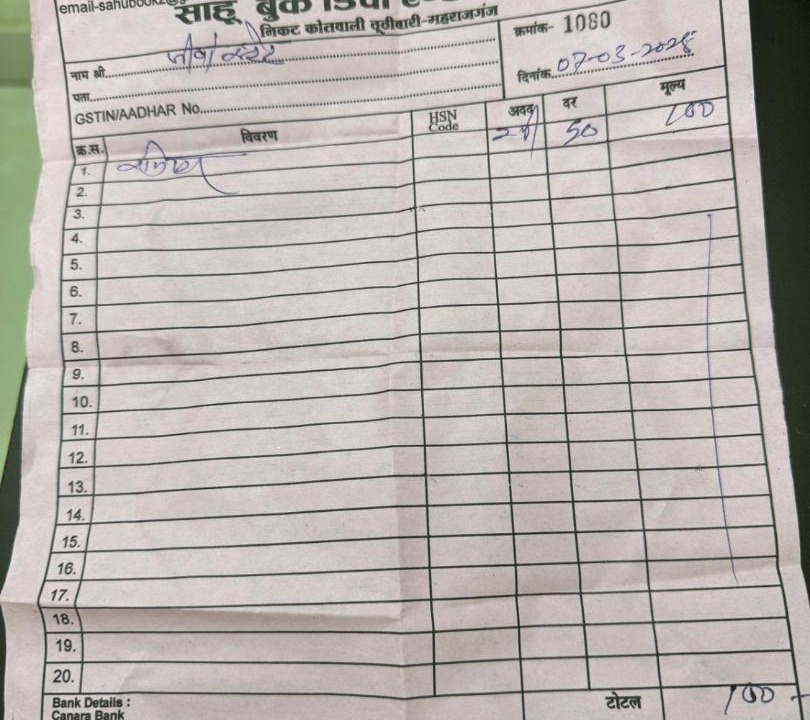 email-sahubook2@g
साहू बुक डिपो
निकट कोतवाली ठूठीबारी-महराजगंज
क्रमांक- 1080
नाम श्री
दिनांक 07-03-2025
पता
GSTIN/AADHAR No.
क्र.स. विवरण HSN Code अदद दर मूल्य
1. 50 100
2.
3.
4.
5.
6.
7.
8.
9.
10.
11.
12.
13.
14.
15.
16.
17.
18.
19.
20.
Bank Details : टोटल 100
Canara Bank